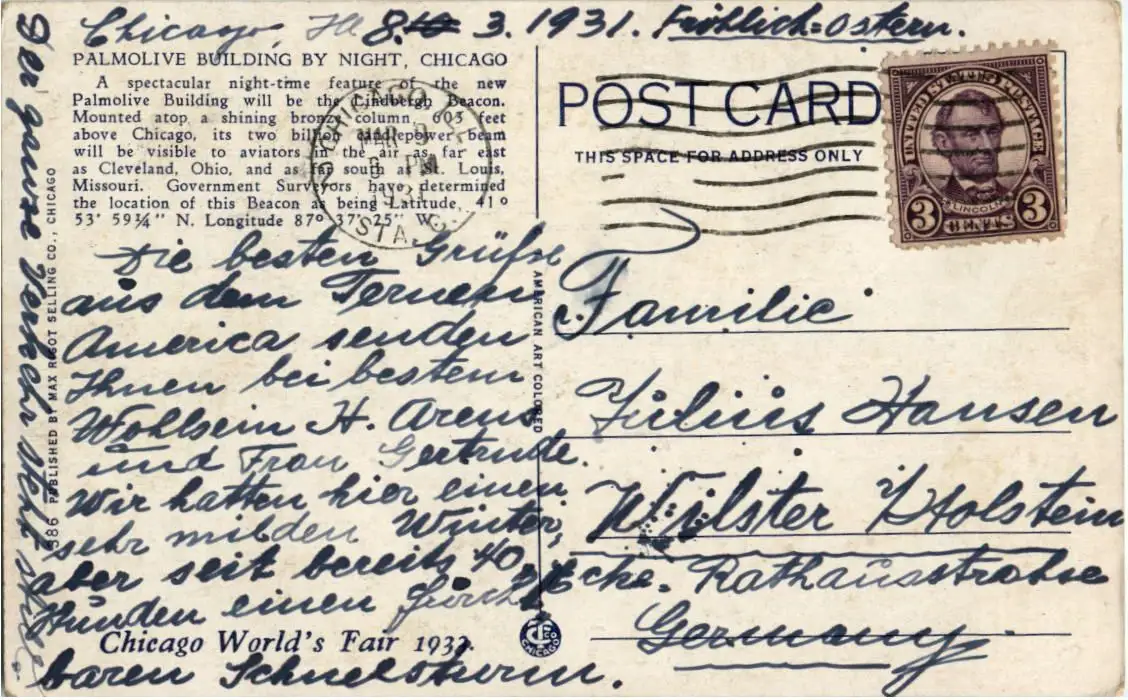 Chicago, Ill 8. 3. 1931. Fröhlich=Ostern.
PALMOLIVE BUILDING BY NIGHT, CHICAGO
A spectacular night-time feature of the new
Palmolive Building will be the Lindbergh Beacon.
Mounted atop a shining bronze column, 603 feet
above Chicago, its two billion candlepower beam
will be visible to aviators in the air as far east
as Cleveland, Ohio, and as far south as St. Louis,
Missouri. Government Surveyors have determined
the location of this Beacon as being Latitude, 41°
53' 59¾" N. Longitude 87° 37' 25" W.
Die besten Grüße
aus dem Fernen
America senden
Ihnen bei bestem
Wohlsein H. Arens
und Frau Gertrude.
Wir hatten hier einen
sehr milden Winter,
aber seit bereits 40
Stunden einen
Chicago World's Fair 1933.
baren Schneesturm.
Der ganze Verkehr steht still.
586 PUBLISHED BY MAX RIGOT SELLING CO., CHICAGO
AMERICAN ART COLORED
POST CARD
THIS SPACE FOR ADDRESS ONLY
CHICAGO, ILL.
MAR 9
PM
1931
STA.
UNITED STATES POSTAGE
LINCOLN
3 CENTS 3
Familie
Julius Hansen
Wilster Holstein
Ecke. Rathausstrahse
Germany.
CHICAGO